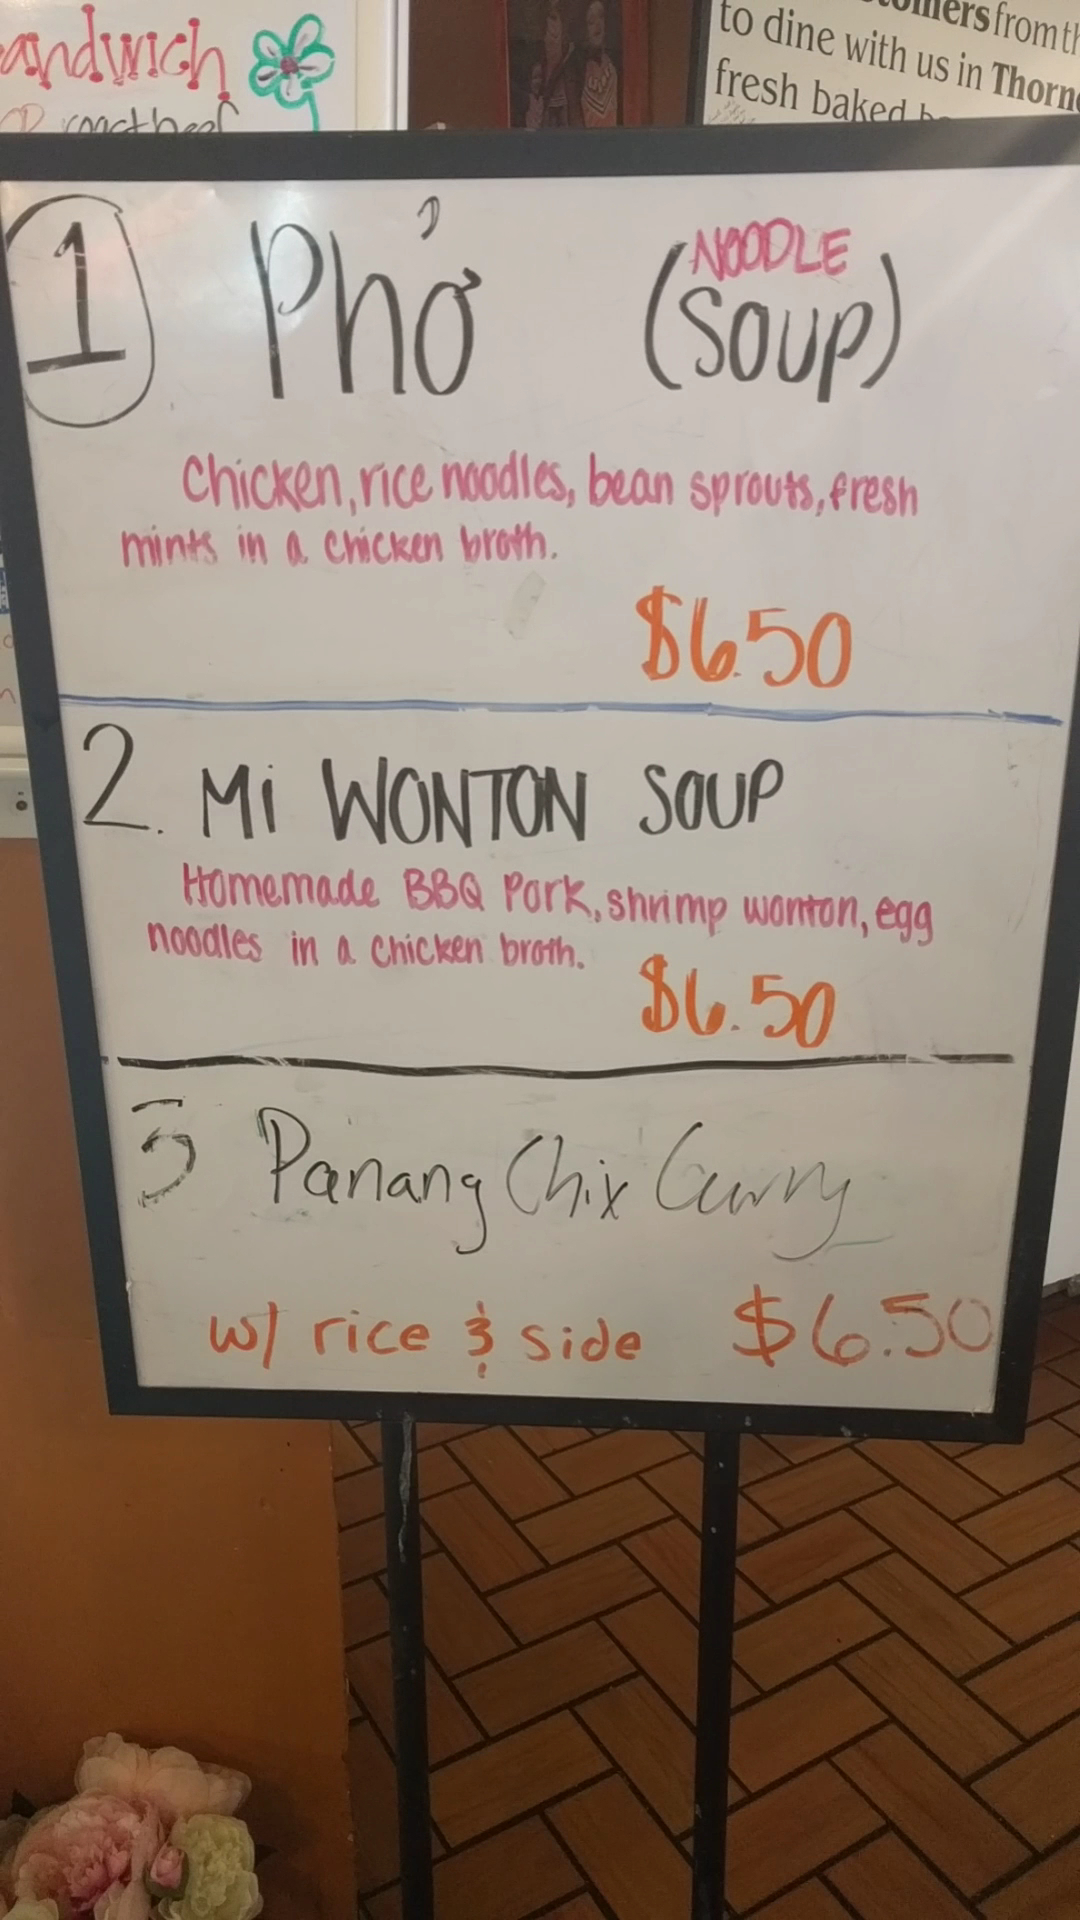 andwich
roast beef
stomers from th
to dine with us in Thorn
fresh baked
1 Phở (NOODLE
SOUP)
Chicken, rice noodles, bean sprouts, fresh
mints in a chicken broth.
$6.50
2. Mi WONTON SOUP
Homemade BBQ Pork, shrimp wonton, egg
noodles in a chicken broth.
$6.50
3 Panang Chix Curry
w/ rice & side $6.50